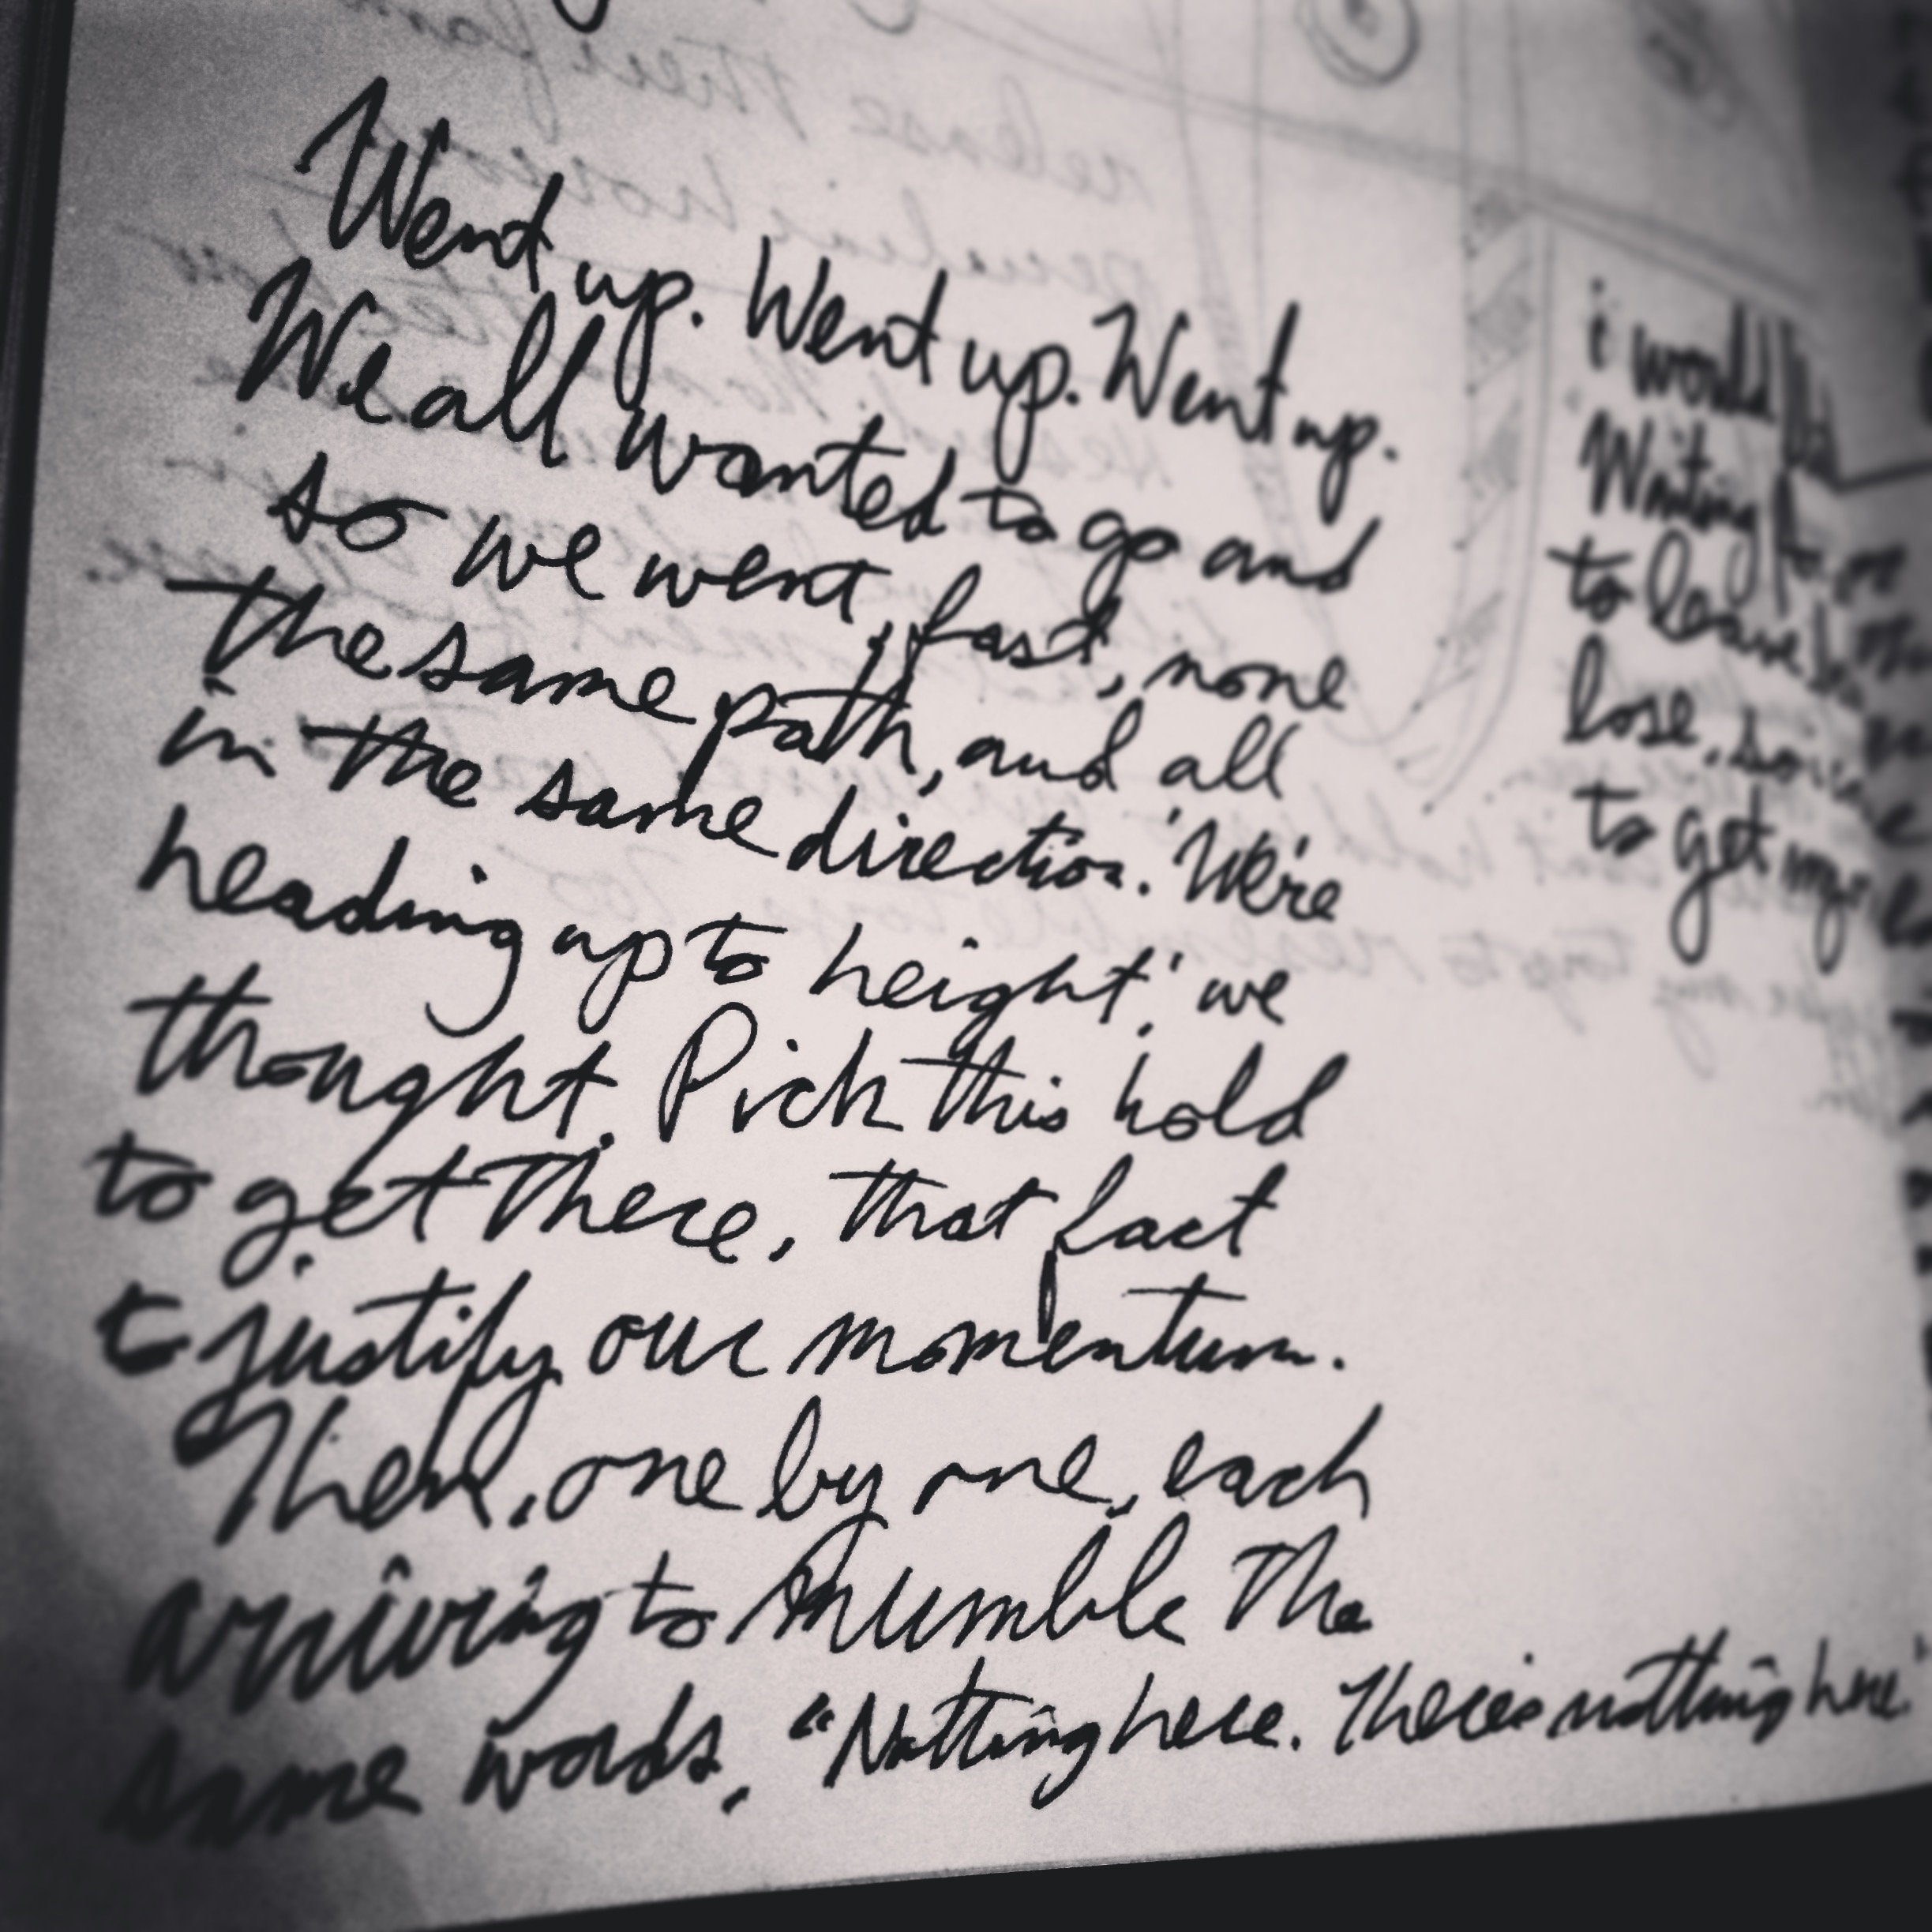 Went up. Went up. Went up.
We all wanted to go and
so we went, fast, none
the same path, and all
in the same direction. 'We're
heading up to height,' we
thought. Pick this hold
to get there, that fact
t justify our momentum.
Then, one by one, each
arriving to mumble the
same words, "Nothing here. There's nothing here."
i would
Waiting
to leave
lose,
to get my